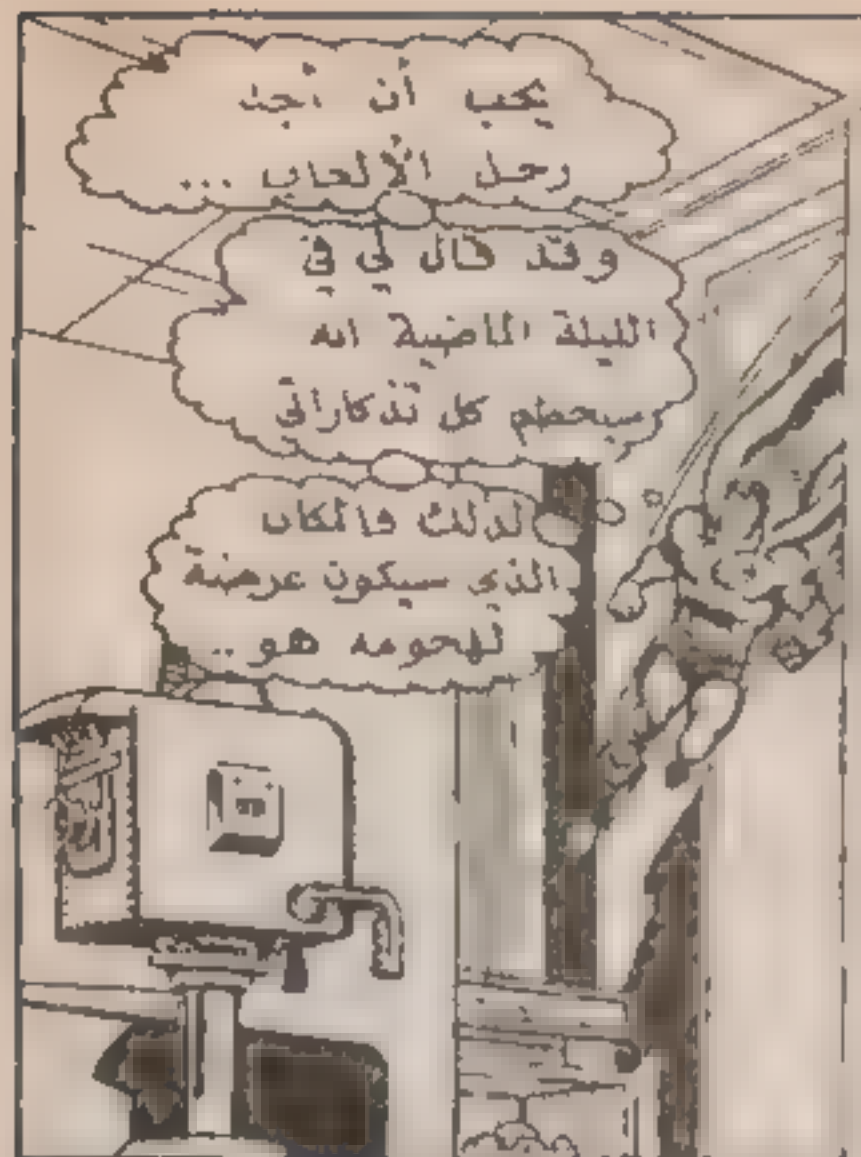 يجب أن أجد
رجل الألعاب ...
وقد قال لي في
الليلة الماضية انه
سيحطم كل تذكاراتي
لذلك فالمكان
الذي سيكون عرضة
لهجومه هو ..